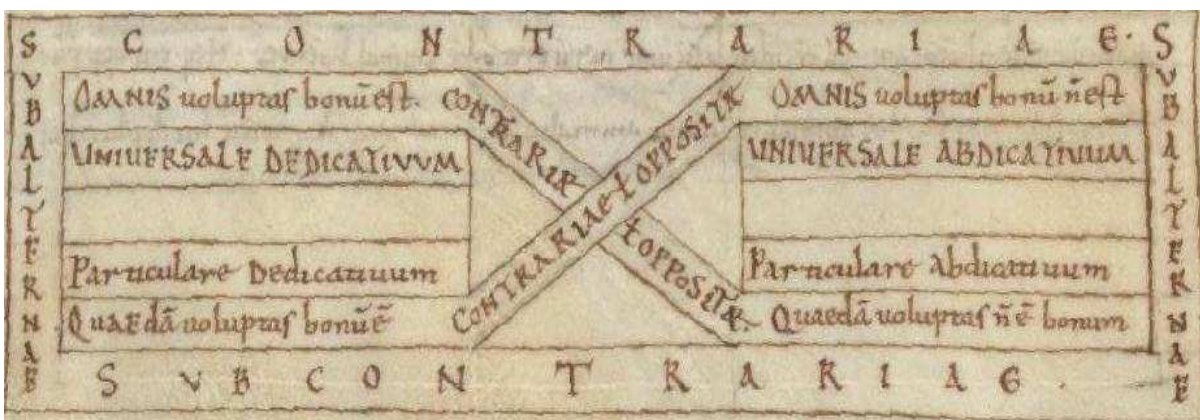 CONTRARIAE.
SVBALTERNAE
OMNIS uoluptas bonū est.
UNIUERSALE DEDICATIVUM
Particulare Dedicatiuum
Quaedā uoluptas bonū ē
CONTRARIÆ ł OPPOSITÆ
CONTRARIAE ł OPPOSITÆ
OMNIS uoluptas bonū n̄ est
UNIUERSALE ABDICATIUUM
Particulare Abdicatiuum
Quaedā uoluptas n̄ ē bonum
SUBALTERNAE
SVBCONTRARIAE.